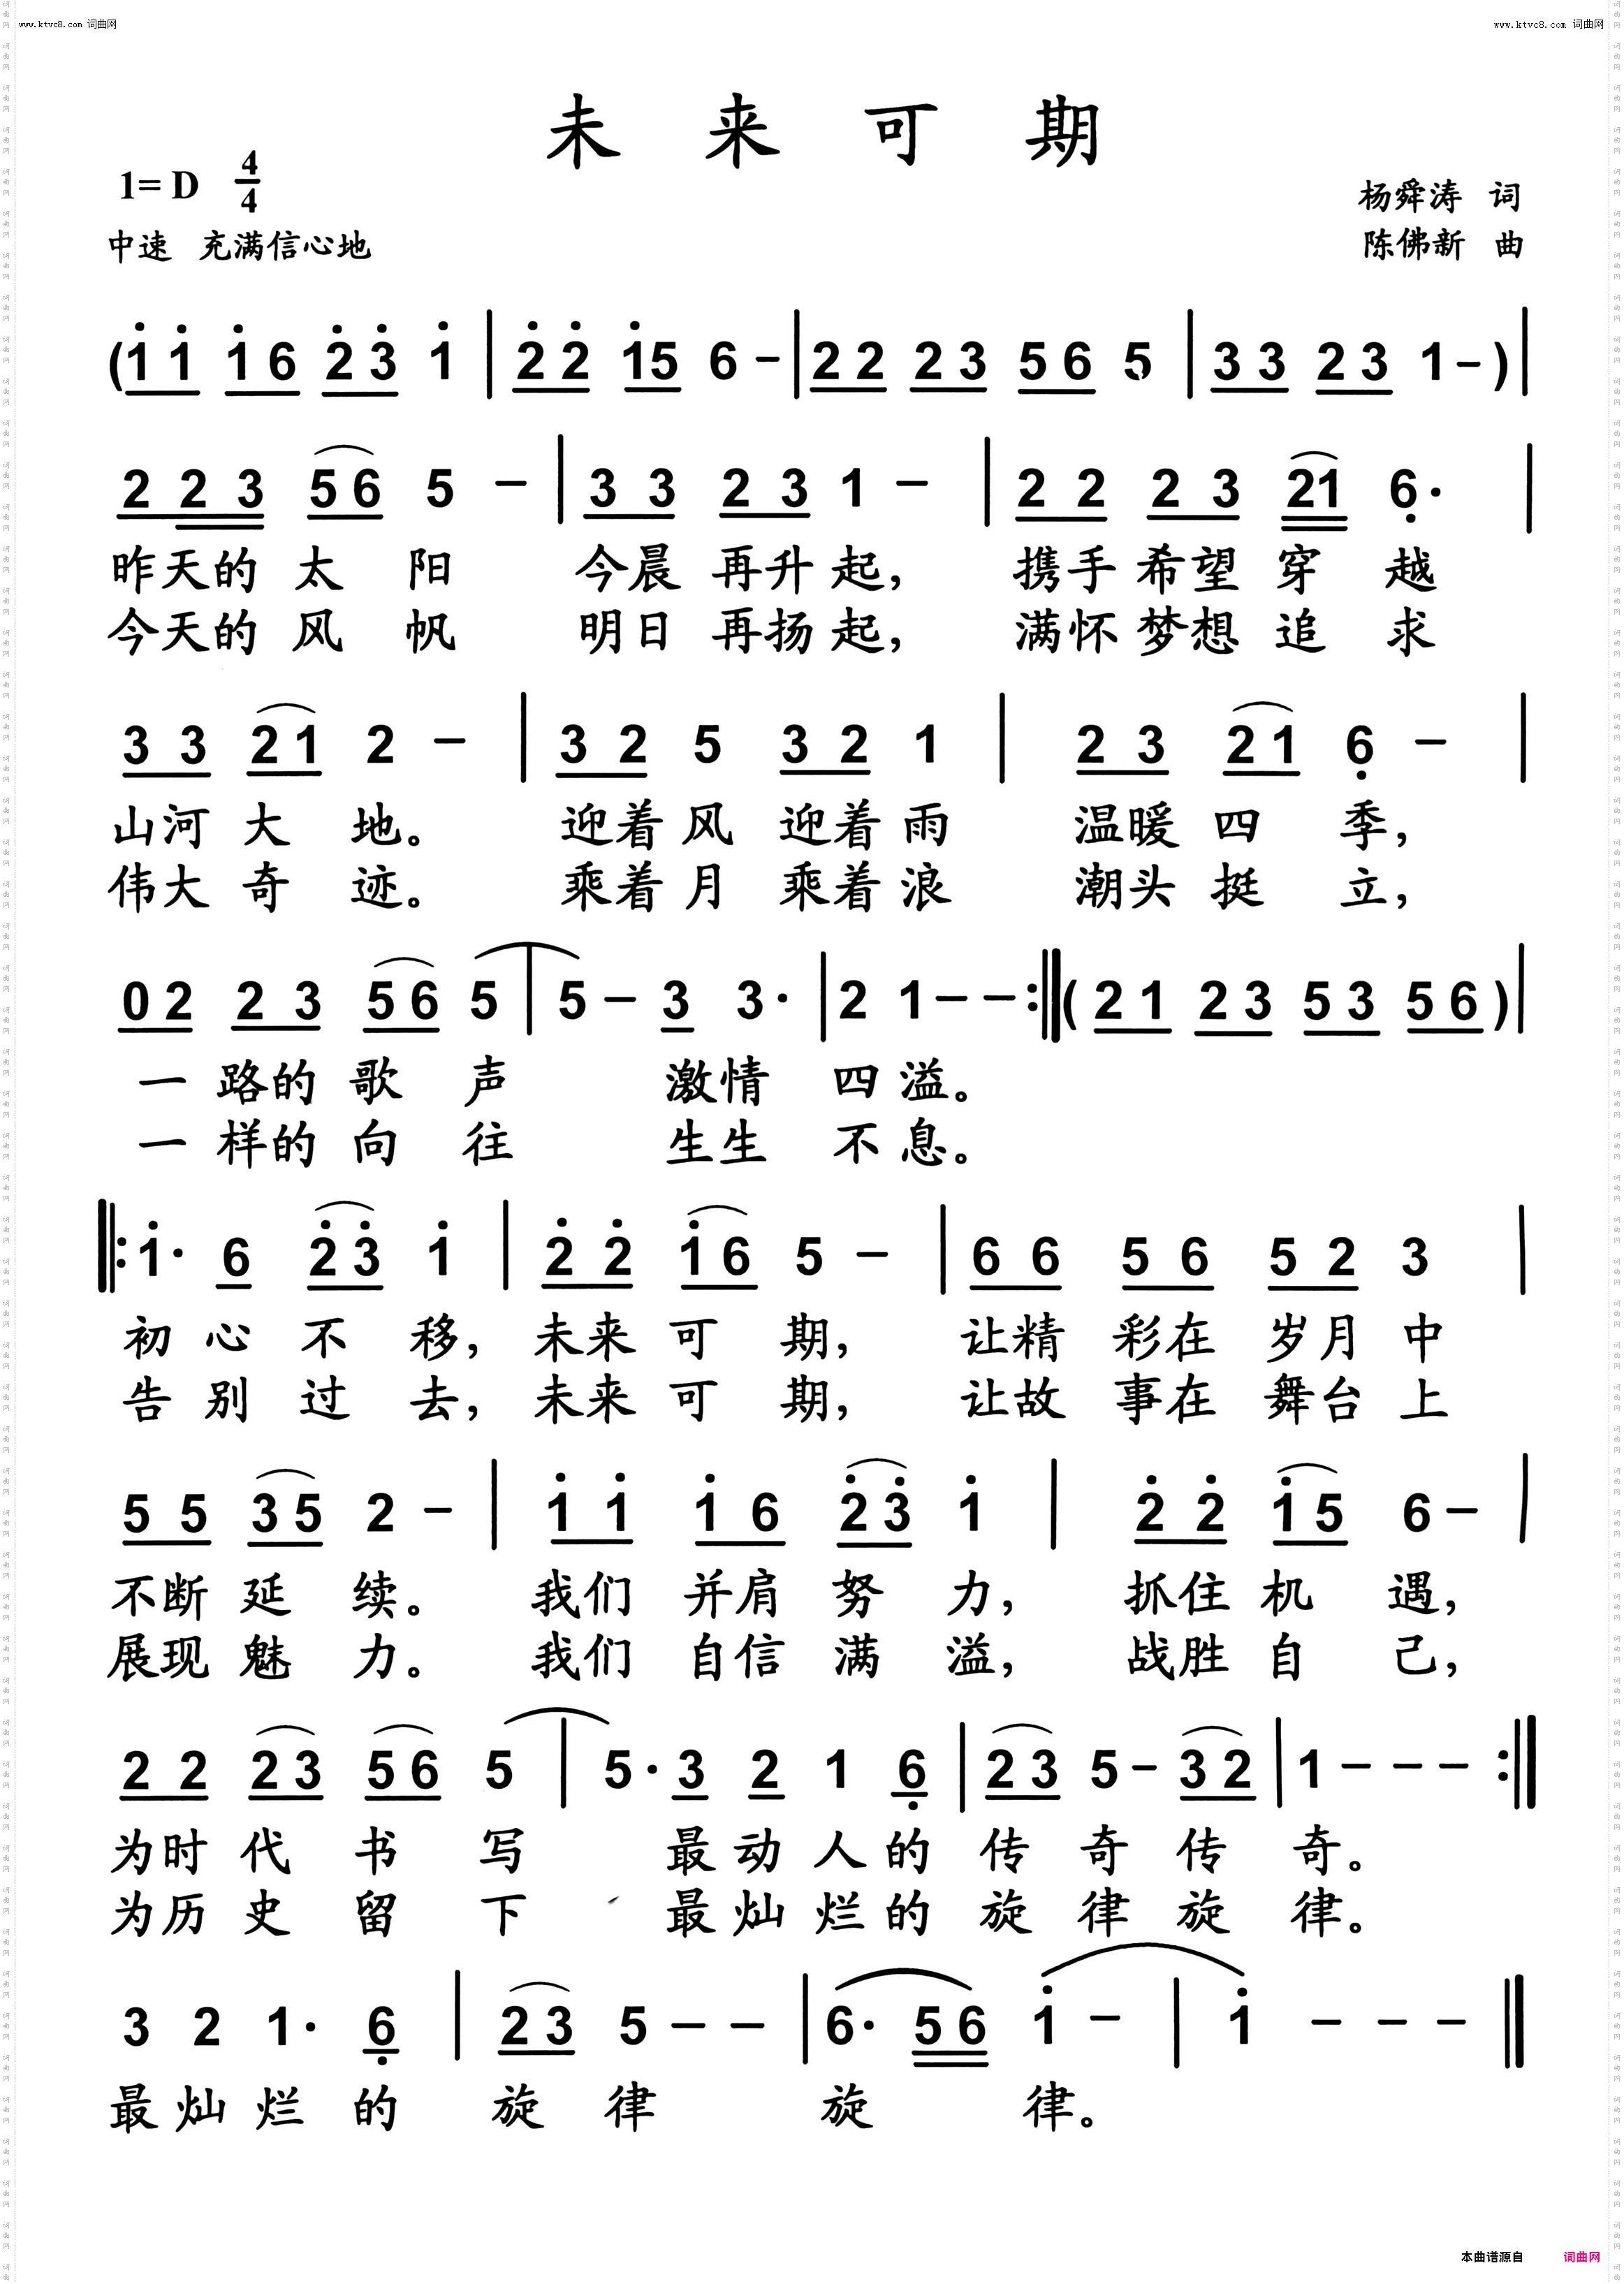 www.ktvc8.com 词曲网
www.ktvc8.com 词曲网
未来可期
1= D 4/4
杨舜涛 词
中速 充满信心地
陈佛新 曲
(1 1 1 6 2 3 1 | 2 2 1 5 6 - | 2 2 2 3 5 6 5 | 3 3 2 3 1 - ) |
2 2 3 5 6 5 - | 3 3 2 3 1 - | 2 2 2 3 2 1 6· |
昨天的 太 阳 今晨 再升 起, 携手 希望 穿 越
今天的 风 帆 明日 再扬 起, 满怀 梦想 追 求
3 3 2 1 2 - | 3 2 5 3 2 1 | 2 3 2 1 6 - |
山河 大 地。 迎着 风 迎着 雨 温暖 四 季,
伟大 奇 迹。 乘着 月 乘着 浪 潮头 挺 立,
0 2 2 3 5 6 5 | 5 - 3 3· | 2 1 - - :‖ ( 2 1 2 3 5 3 5 6 ) |
一 路的 歌 声 激情 四溢。
一 样的 向 往 生生 不息。
‖: 1· 6 2 3 1 | 2 2 1 6 5 - | 6 6 5 6 5 2 3 |
初 心 不 移, 未来 可 期, 让精 彩在 岁月 中
告 别 过 去, 未来 可 期, 让故 事在 舞台 上
5 5 3 5 2 - | 1 1 1 6 2 3 1 | 2 2 1 5 6 - |
不断 延 续。 我们 并肩 努 力, 抓住 机 遇,
展现 魅 力。 我们 自信 满 溢, 战胜 自 己,
2 2 2 3 5 6 5 | 5· 3 2 1 6 | 2 3 5 - 3 2 | 1 - - - :‖
为时 代 书 写 最 动 人 的 传 奇 传 奇。
为历 史 留 下 最 灿 烂 的 旋 律 旋 律。
3 2 1· 6 | 2 3 5 - - | 6· 5 6 1 - | 1 - - - ‖
最 灿 烂 的 旋 律 旋 律。
本曲谱源自 词曲网